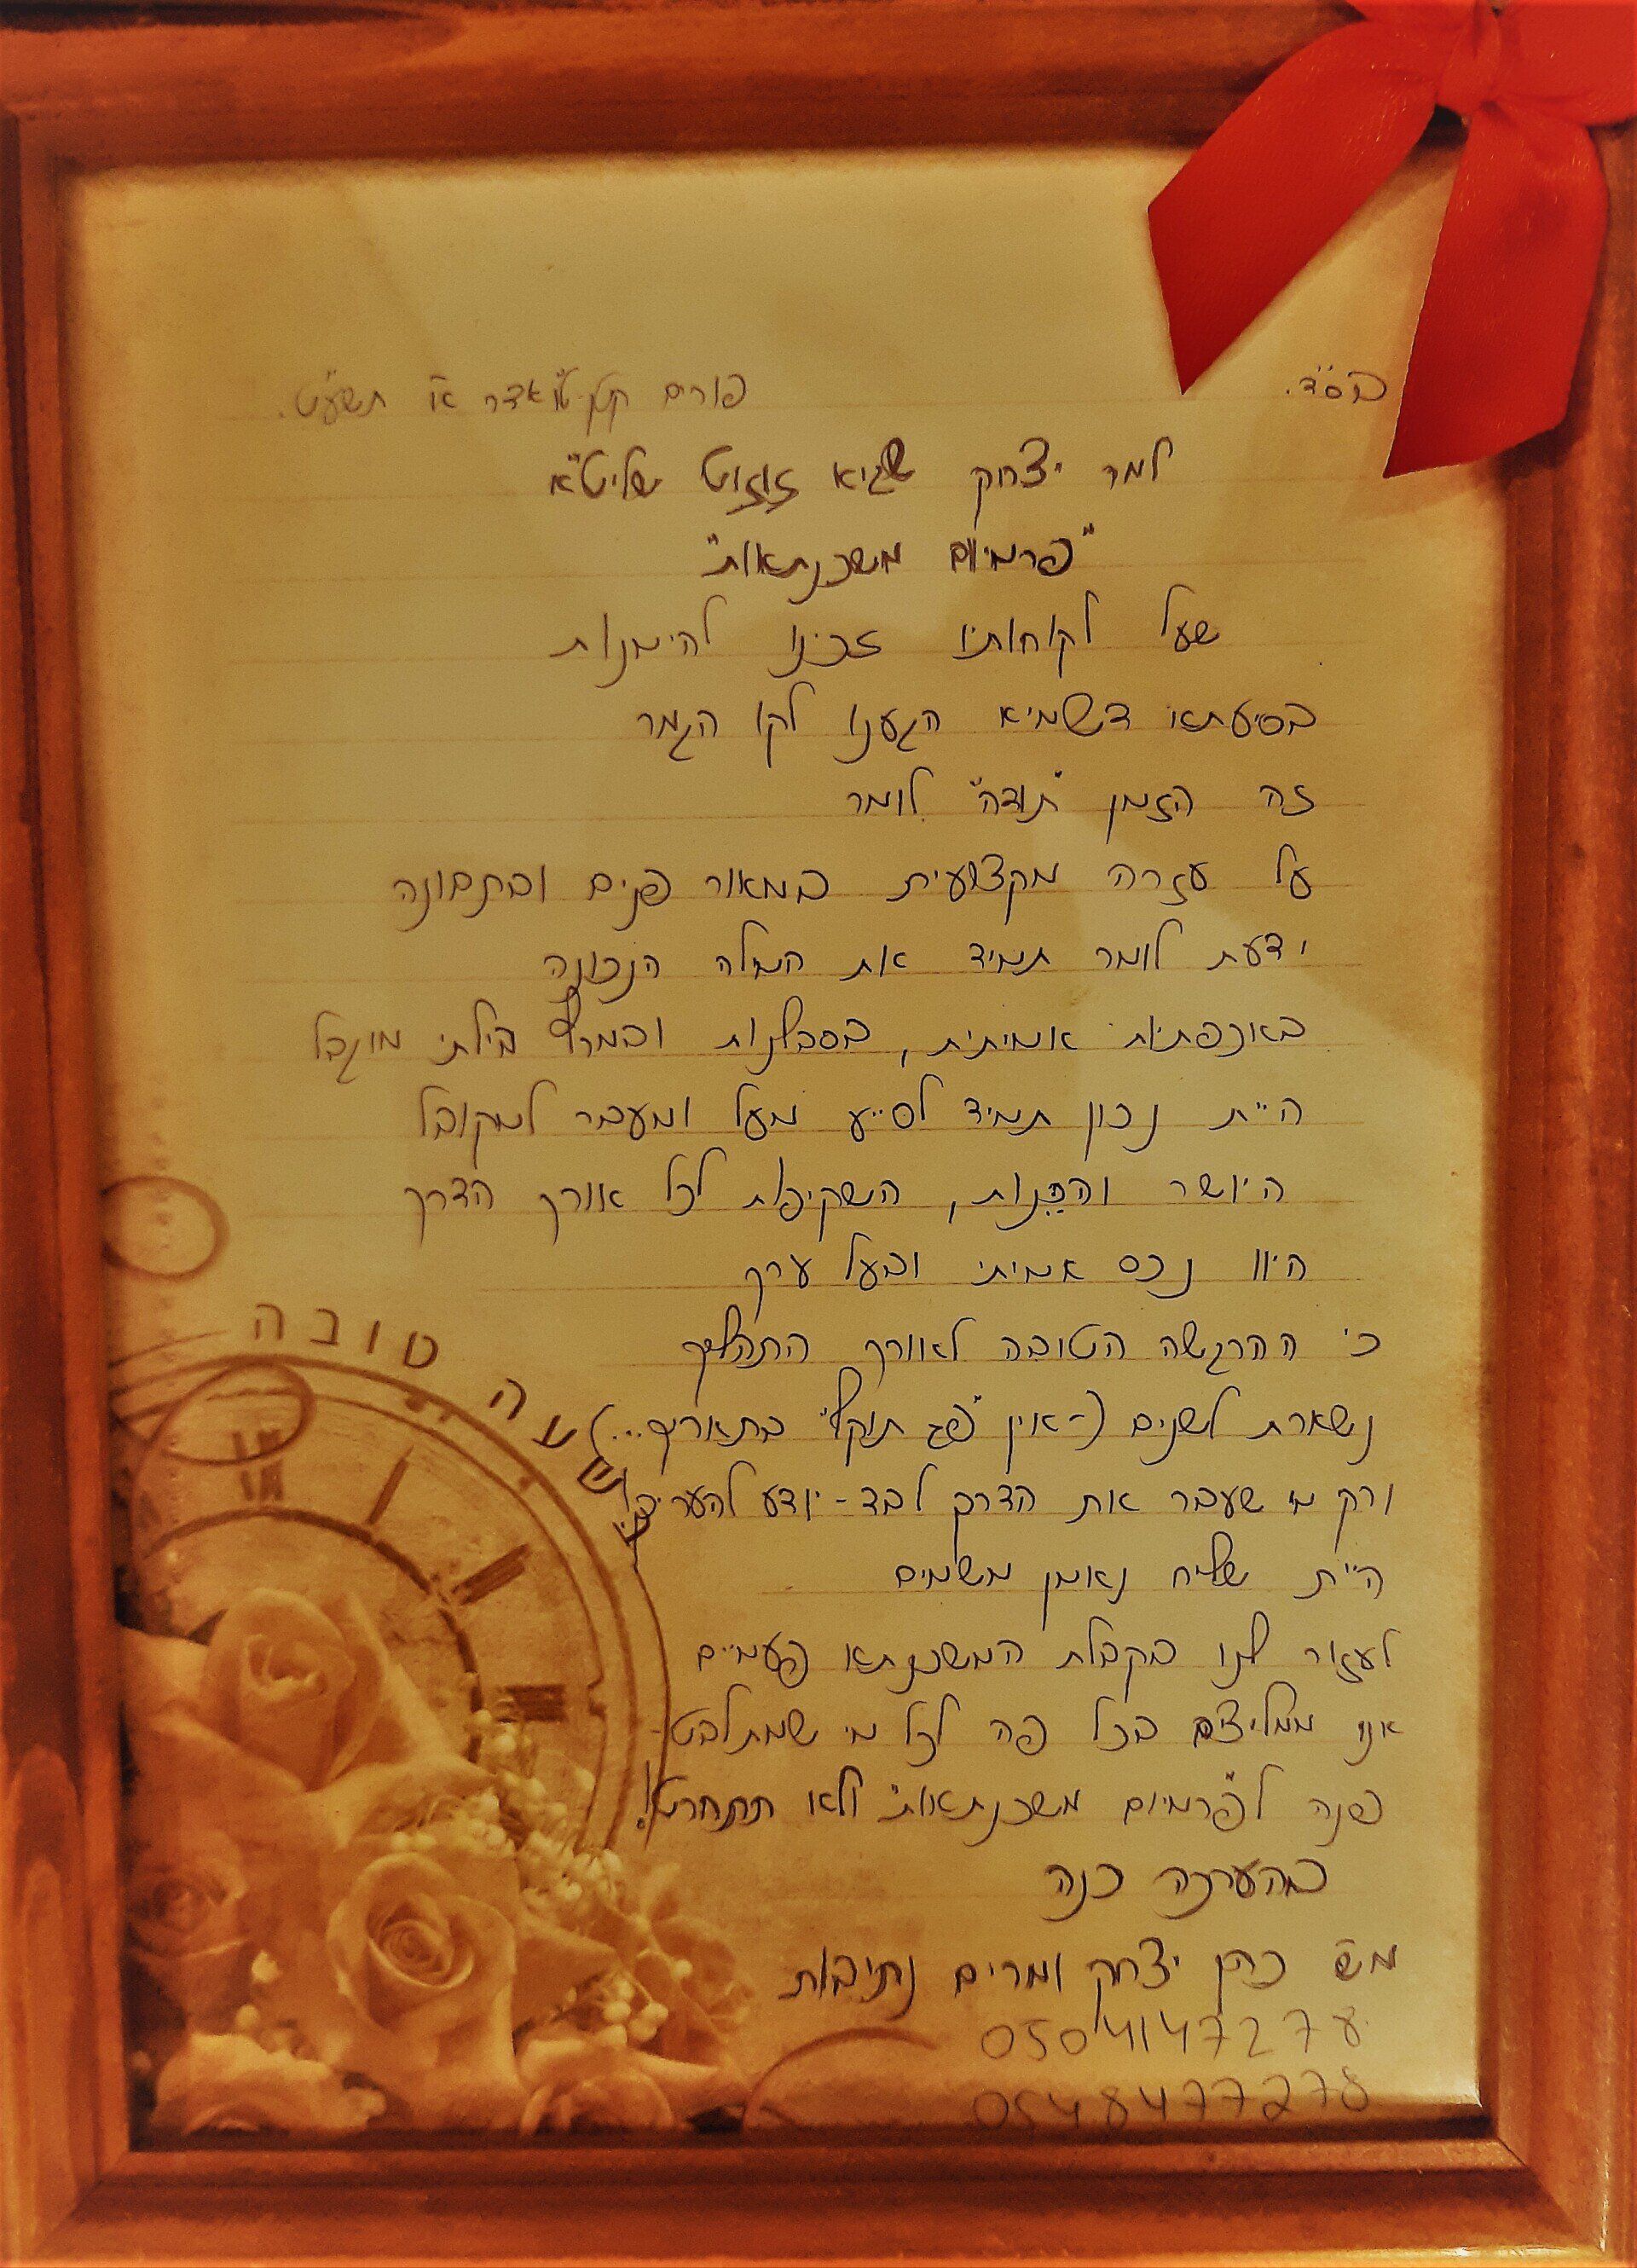 בס"ד. פורים קטן ט"ו אדר א' תשע"ט.
למר יצחק שגיא זוזוט שליט"א
"פרמיום משכנתאות"
שעל לקוחותיו זכינו להימנות
בסיעתא דשמיא הגענו לקו הגמר
זה הזמן "תודה" לומר
על עזרה מקצועית במאור פנים ובתבונה
ידעת לומר תמיד את המילה הנכונה
באכפתיות אמיתית, בסבלנות ובמרץ בילתי מוגבל
היית נכון תמיד לסייע מעל ומעבר למקובל
היושר וההגינות, השקיפות לכל אורך הדרך
היוו נכס אמיתי ובעל ערך
כי ההרגשה הטובה לאורך התהליך
נשארת לשנים (-אין "פג תוקף" בתאריך...)
ורק מי שעבר את הדרך לבד - יודע להעריך!
היית שליח נאמן משמים
לעזור לנו בקבלת המשכנתא פעמיים
אנו ממליצים בכל פה לכל מי שמתלבט
פנה ל"פרמיום משכנתאות" ולא תתחרט!
בהערכה כנה
מש' כהן יצחק ומרים נתיבות
0504147278
0548477278
שעה טובה